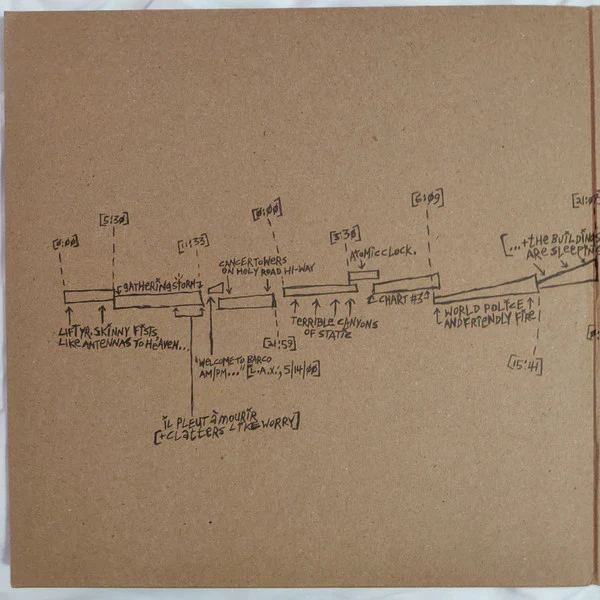 [0:00]
[5:30]
[11:33]
[0:00]
[5:30]
[6:09]
[21:
GATHERING STORM
CANCER TOWERS
ON HOLY ROAD HI-WAY
ATOMIC CLOCK.
[...+THE BUILDINGS
ARE SLEEPING
LIFT YR. SKINNY FISTS
LIKE ANTENNAS TO HEAVEN...
"WELCOME TO BARCO
AM/PM..." [L.A.X.; 5/14/00]
[21:59]
TERRIBLE CANYONS
OF STATIC
CHART #3
WORLD POLICE
AND FRIENDLY FIRE
[15:41]
IL PLEUT À MOURIR
[+CLATTERS LIKE WORRY]